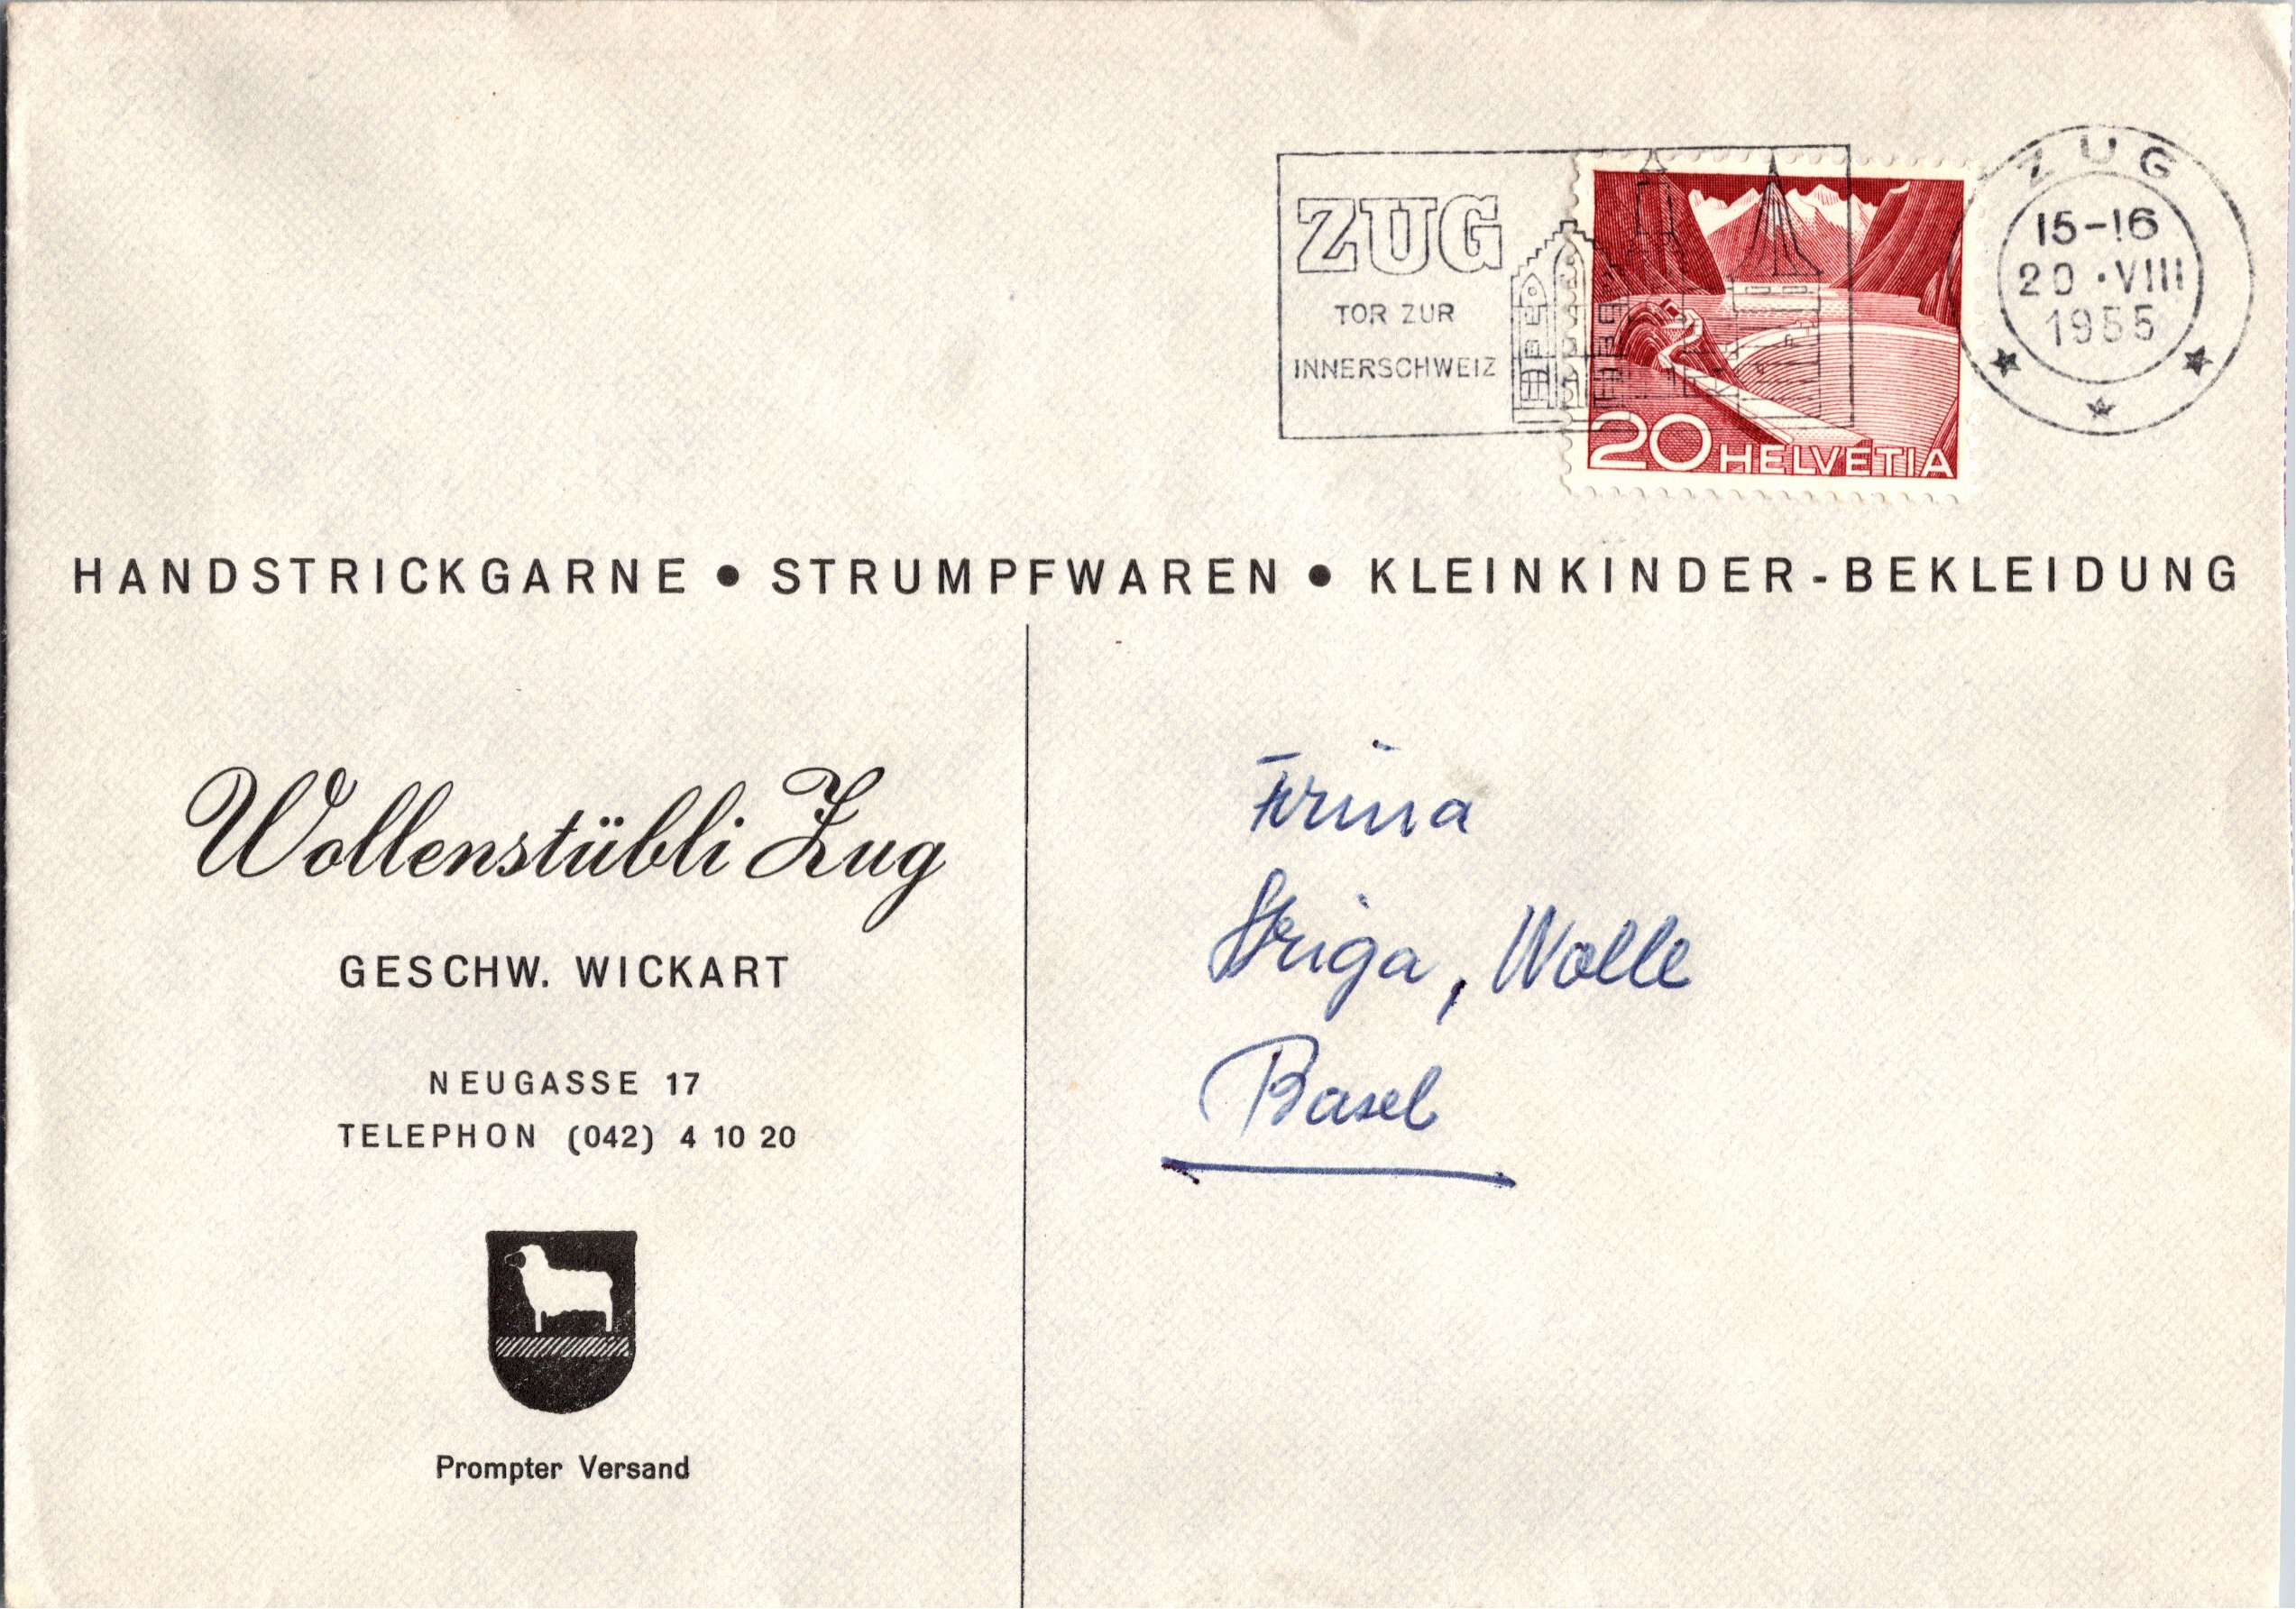 ZUG
TOR ZUR
INNERSCHWEIZ
ZUG
15-16
20 · VIII
1955
20 HELVETIA
HANDSTRICKGARNE • STRUMPFWAREN • KLEINKINDER-BEKLEIDUNG
Wollenstübli Zug
GESCHW. WICKART
NEUGASSE 17
TELEPHON (042) 4 10 20
Prompter Versand
Firma
Striga, Wolle
Basel